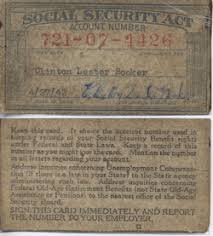 SOCIAL SECURITY ACT
ACCOUNT NUMBER
721-07-1426
Clinton Lester Booker
Keep this card. It shows the account number used in
keeping a record of your Social Security benefit rights
under Federal and State Laws. Keep a record of
number as you might lose this card. Mention the number
in all letters regarding your account.
Address inquiries concerning Unemployment Compensation
(if there is a law in your State) to the State agency
administering such law. Address inquiries concerning
Federal Old-Age Retirement Benefits (not State Old-Age
Assistance or Pension) to the nearest office of the Social
Security Board.
SIGN THIS CARD IMMEDIATELY AND REPORT
THE NUMBER TO YOUR EMPLOYER.